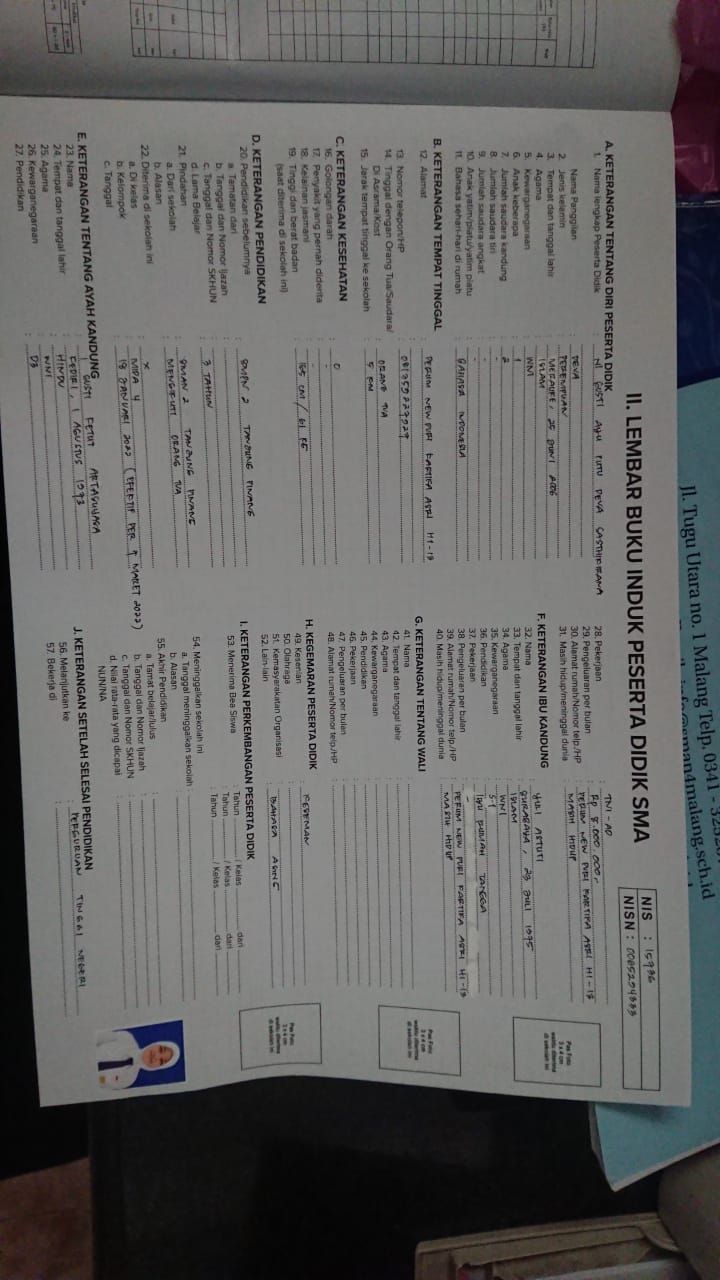 Jl. Tugu Utara no. 1 Malang Telp. 0341 -
II. LEMBAR BUKU INDUK PESERTA DIDIK SMA
NIS : 15736
NISN : 0065254333
A. KETERANGAN TENTANG DIRI PESERTA DIDIK
1. Nama lengkap Peserta Didik : NI GUSTI AYU PUTU DEVA SASTHIKIRANA
Nama Panggilan : DEVA
2. Jenis kelamin : PEREMPUAN
3. Tempat dan tanggal lahir : MERAUKE, 25 JUNI 2006
4. Agama : ISLAM
5. Kewarganegaraan : WNI
6. Anak keberapa : 1
7. Jumlah saudara kandung : 2
8. Jumlah saudara tiri : -
9. Jumlah saudara angkat : -
10. Anak yatim/piatu/yatim piatu : -
11. Bahasa sehari-hari di rumah : BAHASA INDONESIA
B. KETERANGAN TEMPAT TINGGAL
12. Alamat : PERUM NEW PURI KARTIKA ASRI H1-18
13. Nomor telepon/HP : 081359227027
14. Tinggal dengan Orang Tua/Saudara/
Di Asrama/Kost : ORANG TUA
15. Jarak tempat tinggal ke sekolah : 5 KM
C. KETERANGAN KESEHATAN
16. Golongan darah : O
17. Penyakit yang pernah diderita : -
18. Kelainan jasmani : -
19. Tinggi dan berat badan : 165 CM / 61 KG
(saat diterima di sekolah ini)
D. KETERANGAN PENDIDIKAN
20. Pendidikan sebelumnya
a. Tamatan dari : SMPN 2 TANJUNG PINANG
b. Tanggal dan Nomor Ijazah :
c. Tanggal dan Nomor SKHUN :
d. Lama Belajar : 3 TAHUN
21. Pindahan
a. Dari sekolah : SMAN 2 TANJUNG PINANG
b. Alasan : MENGIKUTI ORANG TUA
22. Diterima di sekolah ini
a. Di kelas : X
b. Kelompok : MIPA 4
c. Tanggal : 18 JANUARI 2022 (EFEKTIF PER 1 MARET 2022)
E. KETERANGAN TENTANG AYAH KANDUNG
23. Nama : I GUSTI KETUT ARTAGUNASA
24. Tempat dan tanggal lahir : KEDIRI, 1 AGUSTUS 1973
25. Agama : HINDU
26. Kewarganegaraan : WNI
27. Pendidikan : D3
28. Pekerjaan : TNI-AD
29. Pengeluaran per bulan : Rp 8.000.000,-
30. Alamat rumah/Nomor telp./HP : PERUM NEW PURI KARTIKA ASRI H1-18
31. Masih hidup/meninggal dunia : MASIH HIDUP
F. KETERANGAN IBU KANDUNG
32. Nama : YULI ASTUTI
33. Tempat dan tanggal lahir : SURABAYA, 23 JULI 1975
34. Agama : ISLAM
35. Kewarganegaraan : WNI
36. Pendidikan : S-1
37. Pekerjaan : IBU RUMAH TANGGA
38. Pengeluaran per bulan : -
39. Alamat rumah/Nomor telp./HP : PERUM NEW PURI KARTIKA ASRI H1-18
40. Masih hidup/meninggal dunia : MASIH HIDUP
G. KETERANGAN TENTANG WALI
41. Nama :
42. Tempat dan tanggal lahir :
43. Agama :
44. Kewarganegaraan :
45. Pendidikan :
46. Pekerjaan :
47. Pengeluaran per bulan :
48. Alamat rumah/Nomor telp./HP :
H. KEGEMARAN PESERTA DIDIK
49. Kesenian :
50. Olahraga :
51. Kemasyarakatan Organisasi :
52. Lain-lain : BAHASA ASING
I. KETERANGAN PERKEMBANGAN PESERTA DIDIK
53. Menerima Bea Siswa : Tahun / Kelas dari
: Tahun / Kelas dari
: Tahun / Kelas dari
54. Meninggalkan sekolah ini
a. Tanggal meninggalkan sekolah :
b. Alasan :
55. Akhir Pendidikan
a. Tamat belajar/lulus :
b. Tanggal dan Nomor Ijazah :
c. Tanggal dan Nomor SKHUN :
d. Nilai rata-rata yang dicapai :
NUN/NA
J. KETERANGAN SETELAH SELESAI PENDIDIKAN
56. Melanjutkan ke : PERGURUAN TINGGI NEGERI
57. Bekerja di :
Pas Foto
3 x 4 cm
waktu diterima
di sekolah ini
Pas Foto
3 x 4 cm
waktu diterima
di sekolah ini
Pas Foto
3 x 4 cm
waktu diterima
di sekolah ini